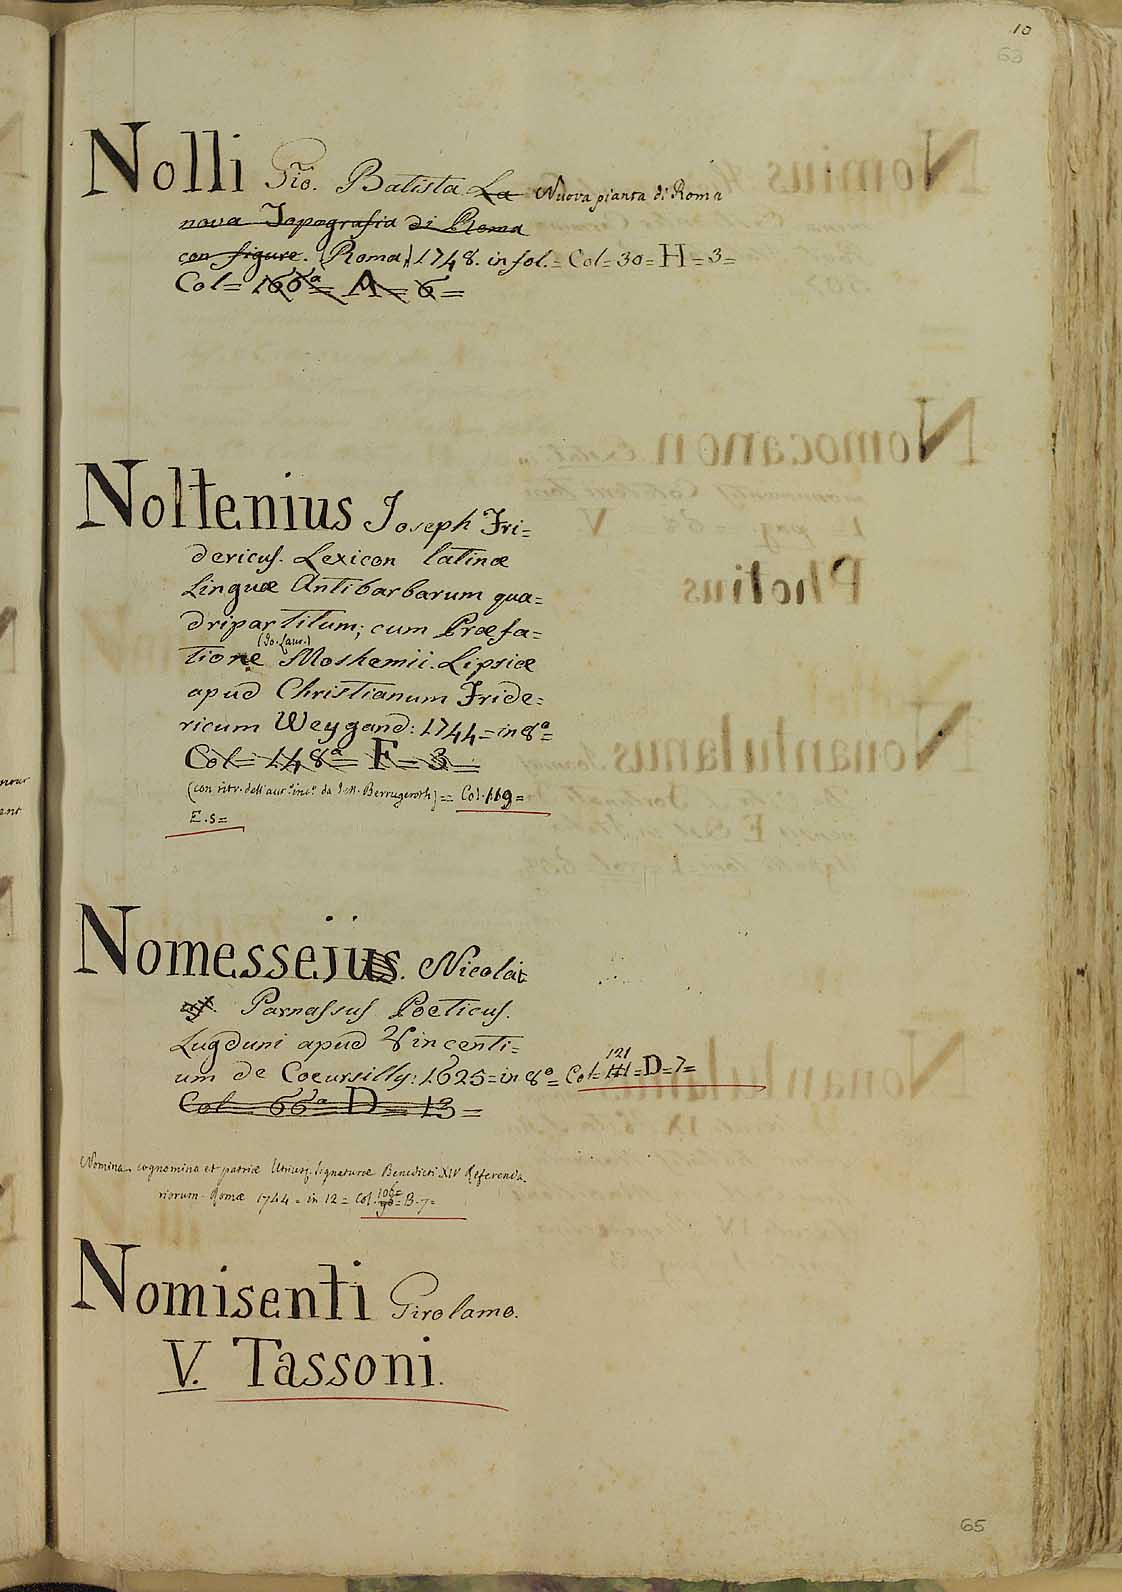 10
63
Nolli Gio. Batista La Nuova pianta di Roma
nova Topografia di Roma
con figure. (Roma) 1748. in fol. = Col = 30 = H = 3 =
Col = 166ª = A = 6 =
Noltenius Joseph Fri=
dericus. Lexicon latinæ
Linguæ Antibarbarum qua=
dripartitum; cum Præfa=
(Io. Laur.)
tione Moshemii. Lipsiæ
apud Christianum Fride=
ricum Weygand: 1744 = in 8º =
Col = 148ª = F = 3 =
(con ritr. dell'aut. inc. da I. M. Berrugeroth) = Col. 119 =
E. 5 =
Nomessejus. Nicolai
Parnassus Poeticus.
Lugduni apud Vincenti=
um de Coeursilly: 1625 = in 8º = Col = 121 = D = 7 =
Col = 66ª D = 13 =
Nomina cognomina et patriæ Utriusq. Signaturæ Benedicti XIV Referenda
riorum. Romæ 1744 = in 12 = Col. 106 = B. 7 =
Nomisenti Girolamo.
V. Tassoni.
65